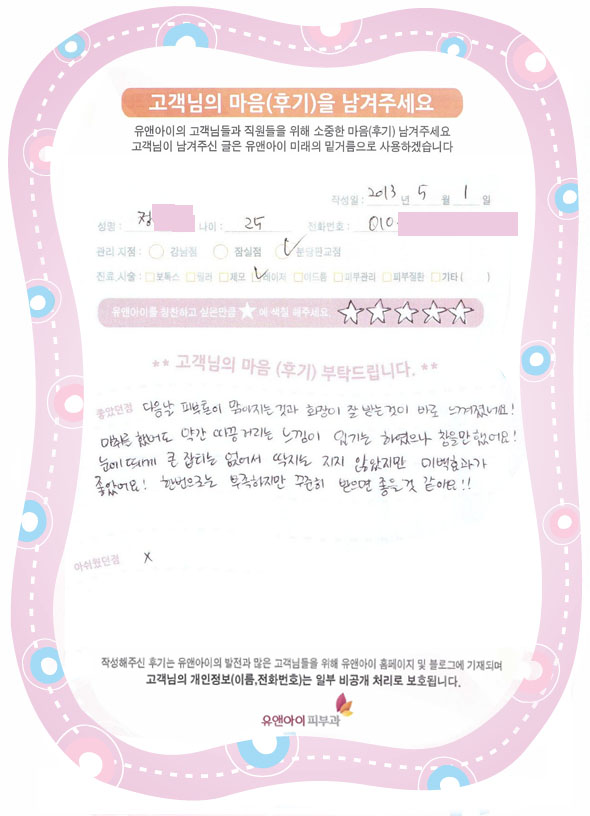 고객님의 마음(후기)을 남겨주세요
유앤아이의 고객님들과 직원들을 위해 소중한 마음(후기) 남겨주세요
고객님이 남겨주신 글은 유앤아이 미래의 밑거름으로 사용하겠습니다
작성일 : 2013 년 5 월 1 일
성명 : 정 나이 : 25 전화번호 : 010-
관리 지점 : 강남점 잠실점 분당판교점
진료 시술 : 보톡스 필러 제모 레이저 이드름 피부관리 피부질환 기타 ( )
유앤아이를 칭찬하고 싶은만큼 ★ 에 색칠 해주세요. ☆☆☆☆☆
** 고객님의 마음 (후기) 부탁드립니다. **
좋았던점 다음날 피부톤이 맑아지는것과 화장이 잘 받는것이 바로 느껴졌네요!
마취를 했어도 약간 따끔거리는 느낌이 있기는 하였으나 참을만 했어요!
눈에 띄게 큰 잡티는 없어서 딱지는 지지 않았지만 미백효과가
좋았어요! 한번으로는 부족하지만 꾸준히 받으면 좋을것 같아요!!
아쉬웠던점 x
작성해주신 후기는 유앤아이의 발전과 많은 고객님들을 위해 유앤아이 홈페이지 및 블로그에 기재되며
고객님의 개인정보(이름,전화번호)는 일부 비공개 처리로 보호됩니다.
유앤아이 피부과